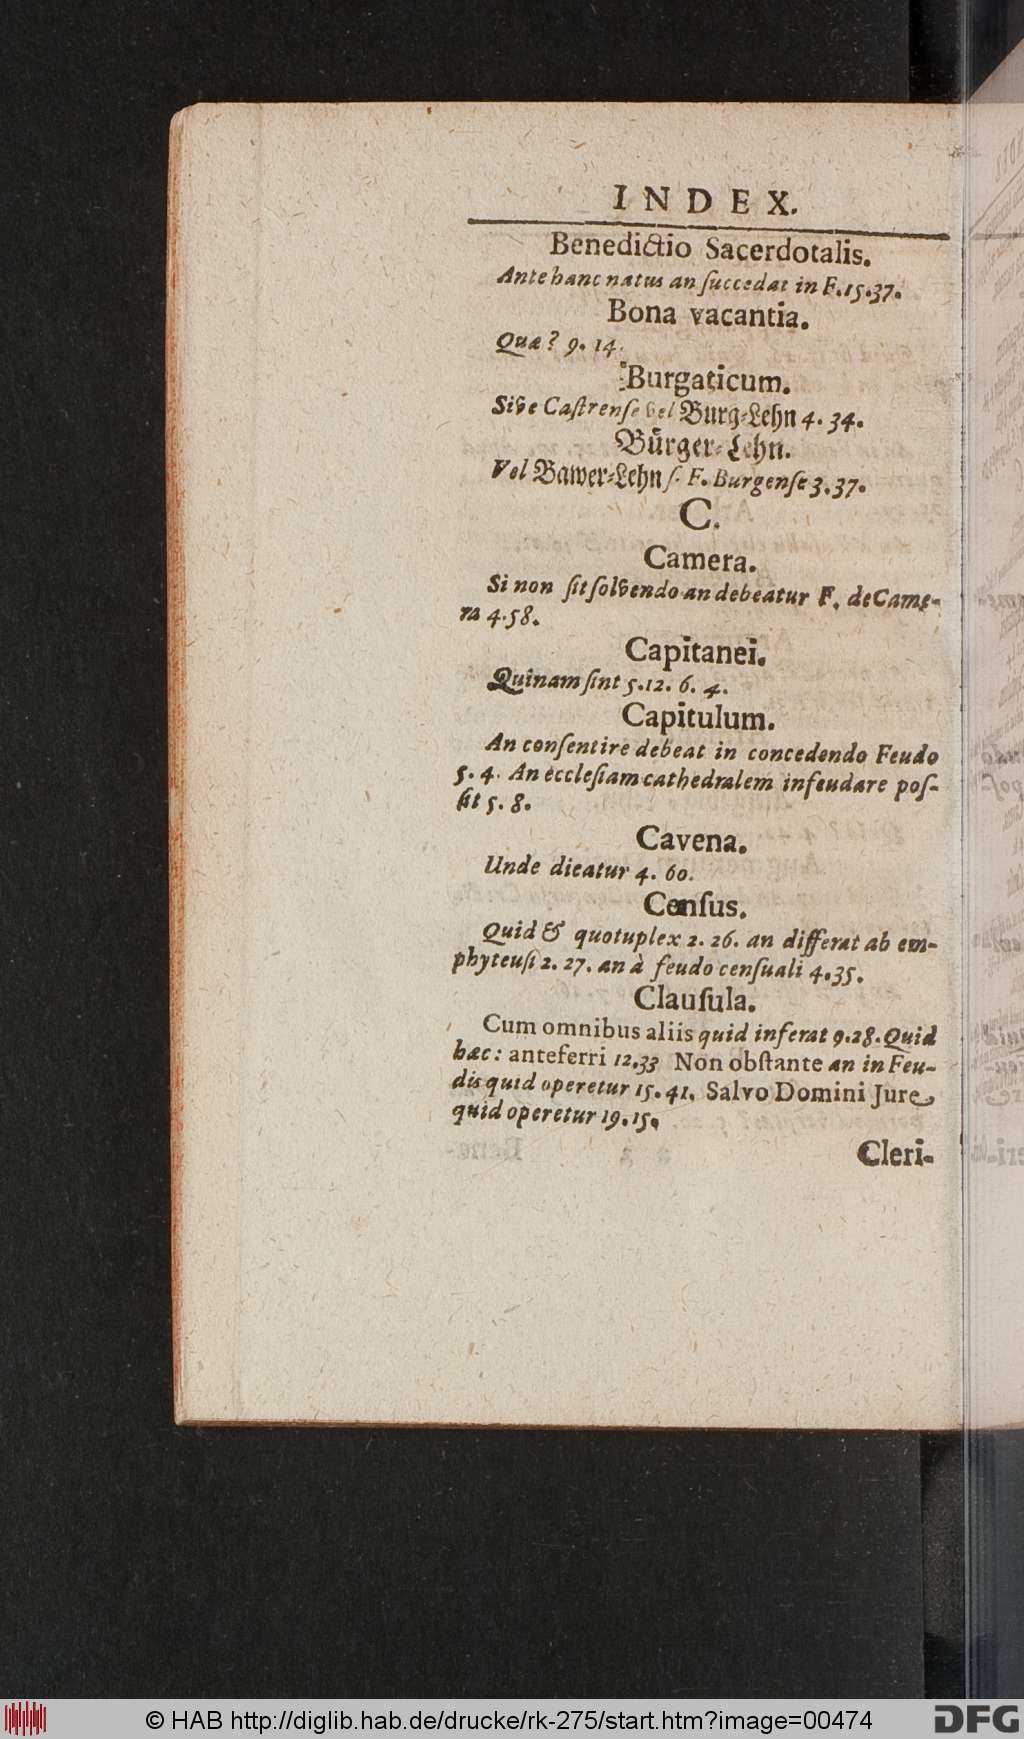 INDEX.
Benedictio Sacerdotalis.
Ante hanc natus an ſuccedat in F. 15. 37.
Bona vacantia.
Quæ? 9. 14.
Burgaticum.
Sive Caſtrenſe vel Burg-Lehn 4. 34.
Bürger-Lehn.
Vel Bawer-Lehn ſ. F. Burgenſe 3. 37.
C.
Camera.
Si non ſit ſolvendo an debeatur F. de Came-
ra 4. 58.
Capitanei.
Quinam ſint 5. 12. 6. 4.
Capitulum.
An conſentire debeat in concedendo Feudo
5. 4. An eccleſiam cathedralem infeudare poſ-
ſit 5. 8.
Cavena.
Unde dicatur 4. 60.
Cenſus.
Quid & quotuplex 2. 26. an differat ab em-
phyteuſi 2. 27. an à feudo cenſuali 4. 35.
Clauſula.
Cum omnibus aliis quid inferat 9. 28. Quid
hæc: anteferri 12. 33 Non obſtante an in Feu-
dis quid operetur 15. 41. Salvo Domini Jure
quid operetur 19. 15.
Cleri-
© HAB http://diglib.hab.de/drucke/rk-275/start.htm?image=00474
DFG